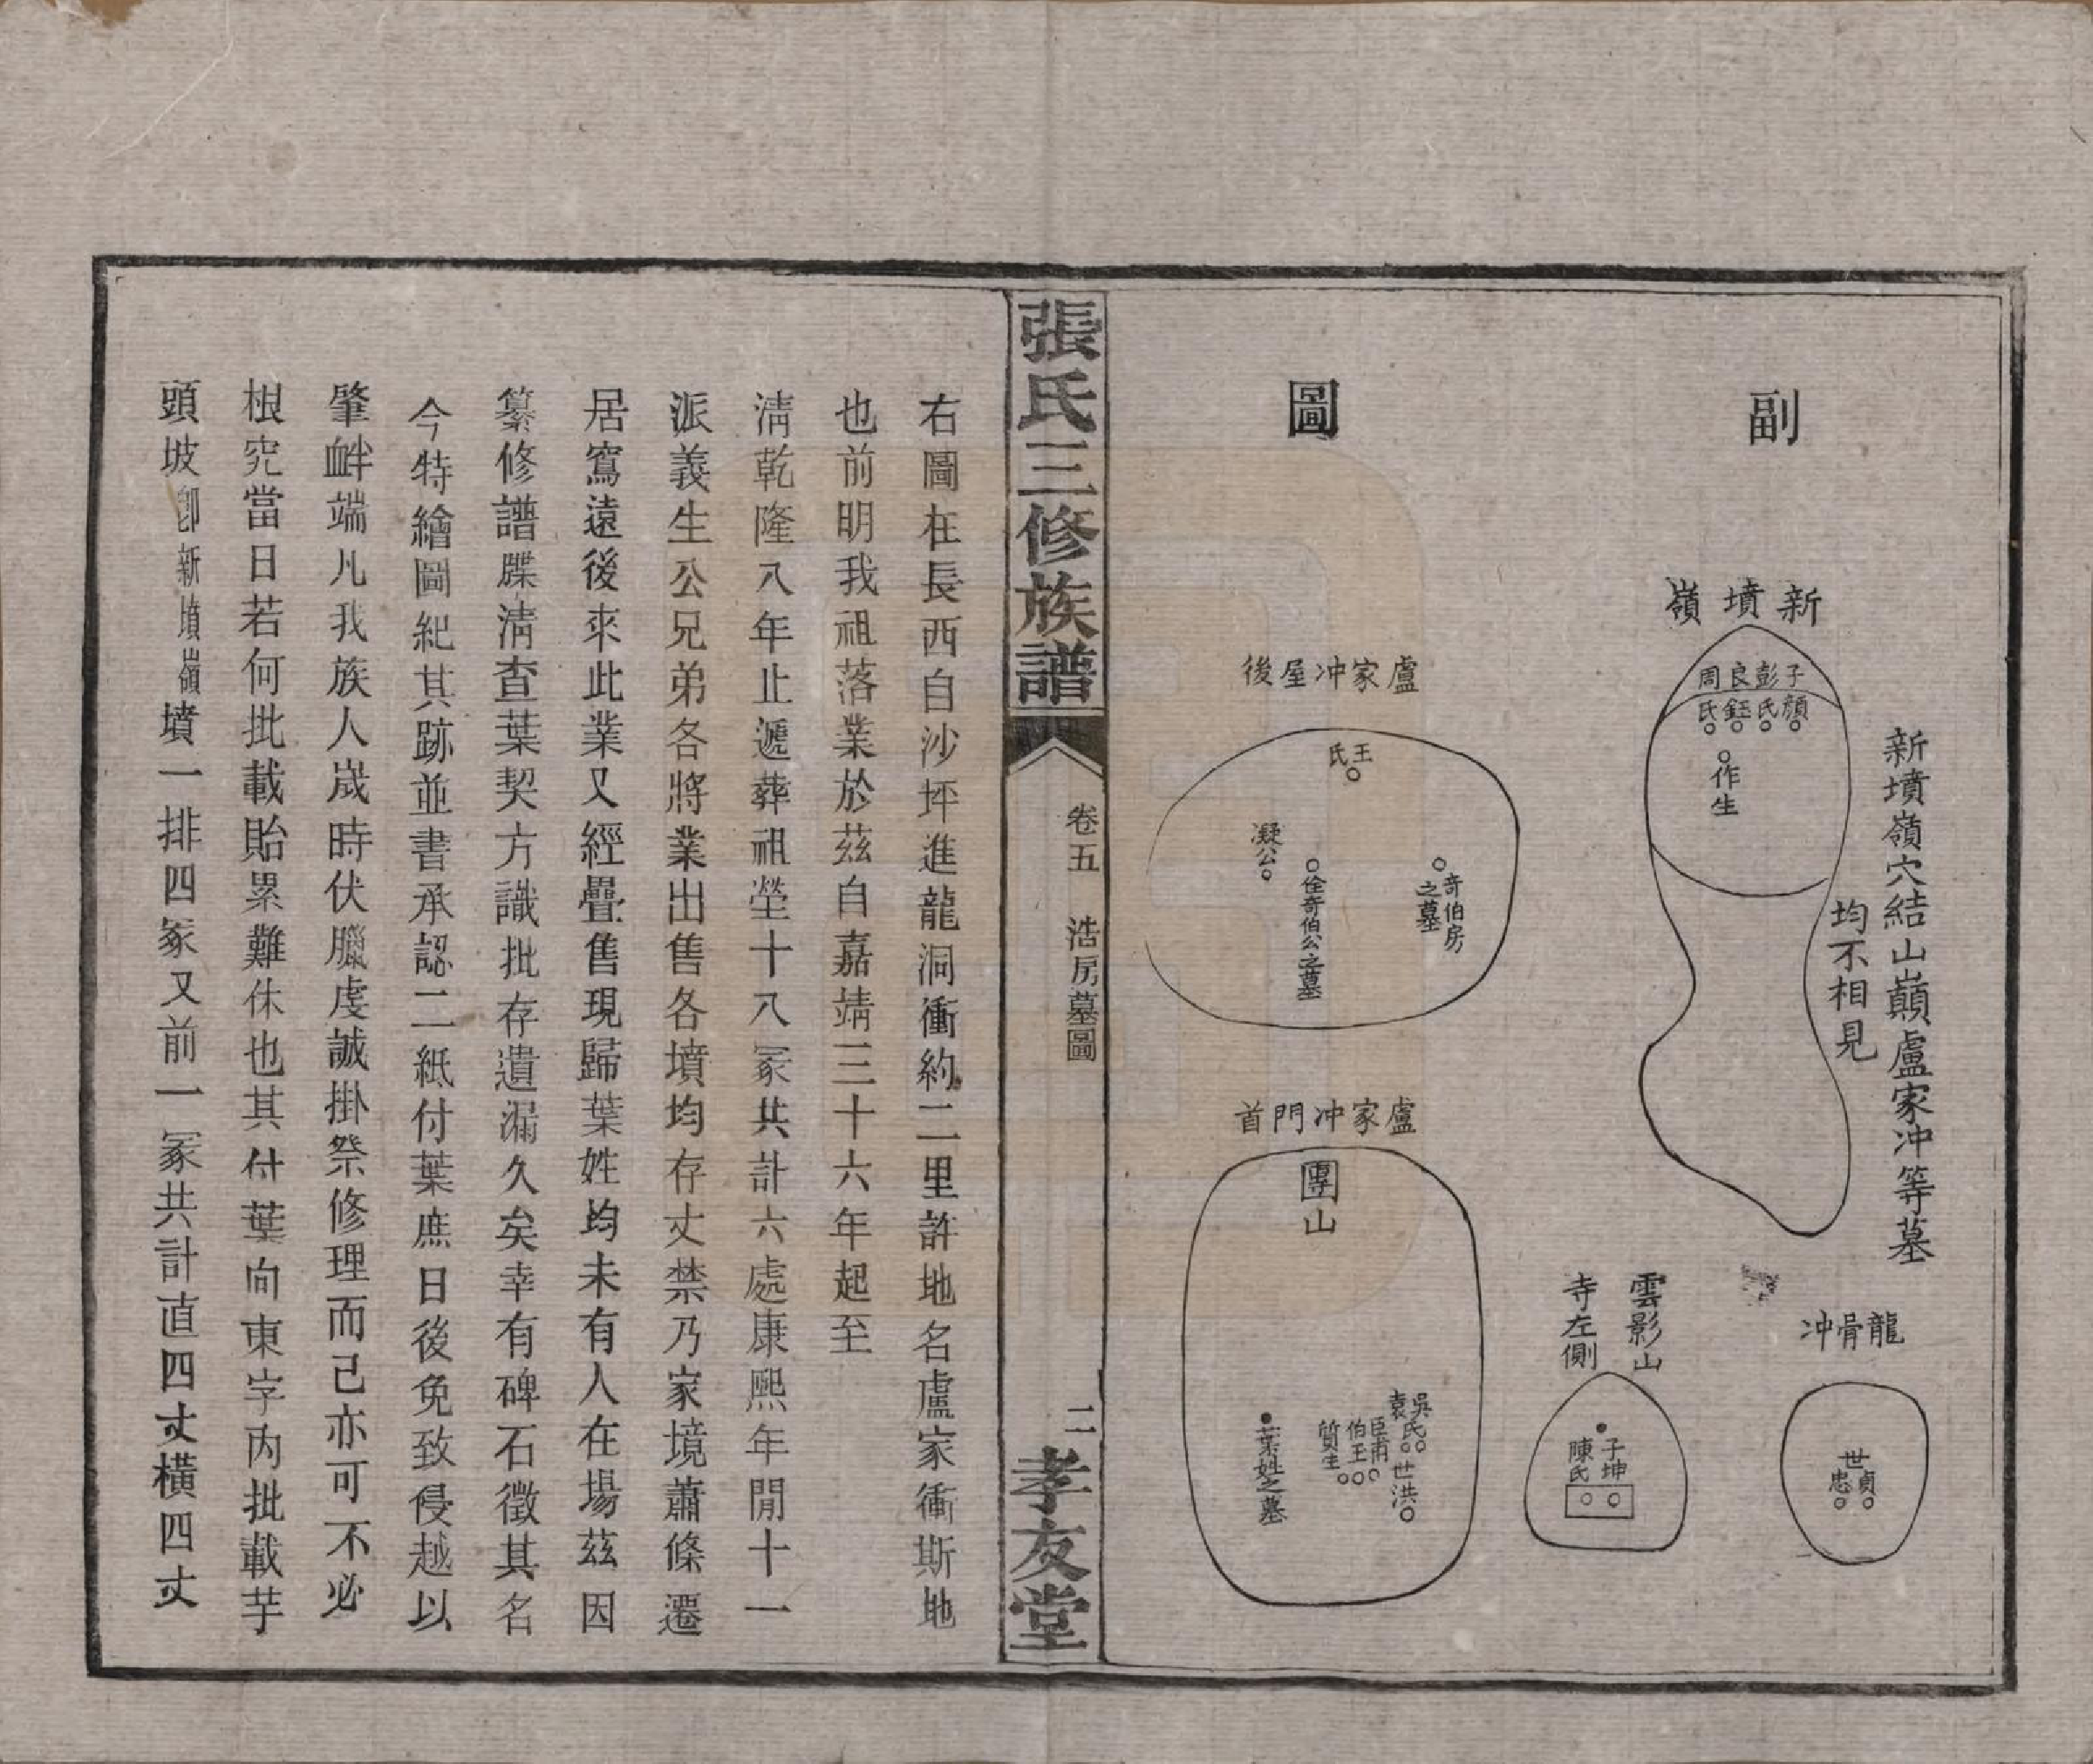 副
圖
新墳嶺
子顏
彭氏
良鈺
周氏
作生
新墳嶺穴結山巔盧家冲等墓
均不相見
龍骨冲
世貞
世忠
雲影山
寺左側
子坤
陳氏
盧家冲屋後
王氏
凝公
佺奇伯公之墓
奇伯房
之墓
盧家冲門首
團山
吳氏
袁
世洪
臣甫
伯玉
質生
葉姓之墓
張氏三修族譜
卷五
浩房墓圖
二
孝友堂
右圖在長西白沙坪進龍洞衝約二里許地名盧家衝斯地
也前明我祖落業於茲自嘉靖三十六年起至
清乾隆八年止遞葬祖塋十八冢共計六處康熙年間十一
派義生公兄弟各將業出售各墳均存丈禁乃家境蕭條遷
居寫遠後來此業又經疊售現歸葉姓均未有人在場茲因
纂修譜牒清查葉契方識批存遺漏久矣幸有碑石徵其名
今特繪圖紀其跡並書承認二紙付葉庶日後免致侵越以
肇衅端凡我族人歲時伏臘虔誠掛祭修理而已亦可不必
根究當日若何批載貽累難休也其付葉向東字內批載芋
頭坡卽新墳嶺墳一排四冢又前一冢共計直四丈橫四丈